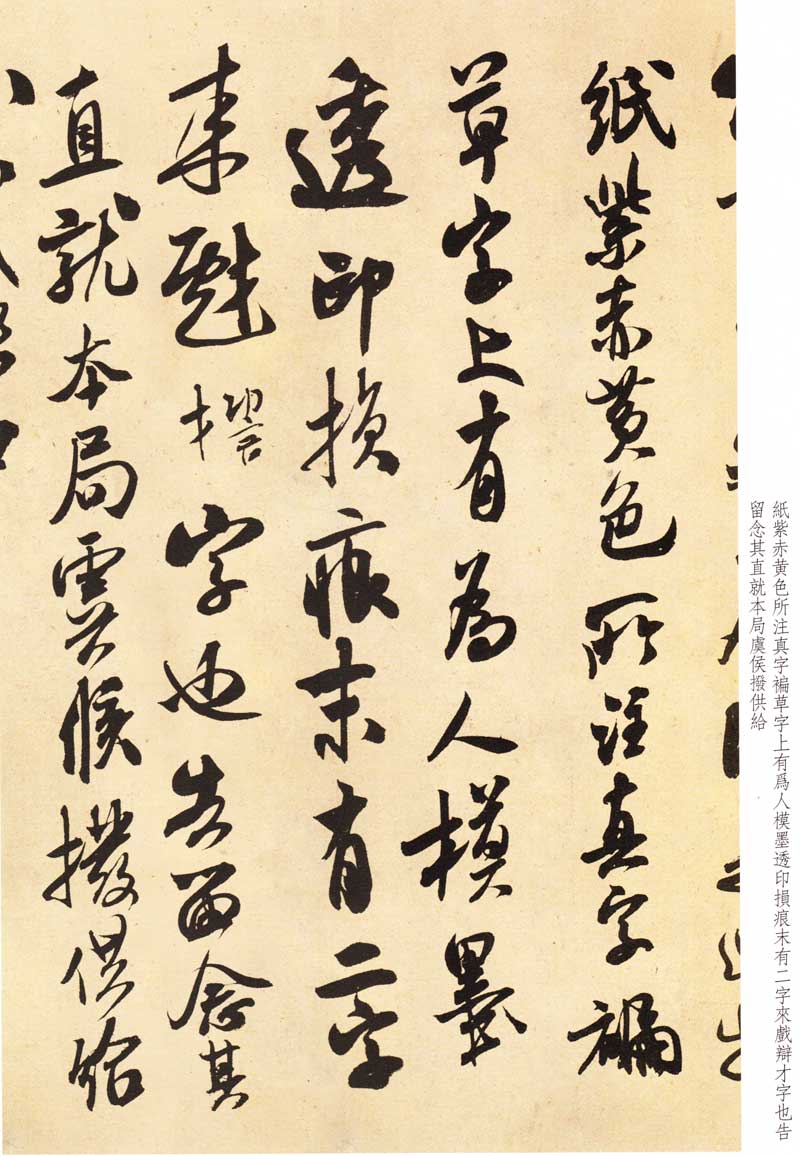 紙紫赤黄色所注真字褊
草字上有為人模墨
透印損痕末有二字
来戯
字也告留念其
直就本局虞候撥供給
紙紫赤黄色所注真字褊草字上有爲人模墨透印損痕末有二字來戲辯才字也告
留念其直就本局虞侯撥供給